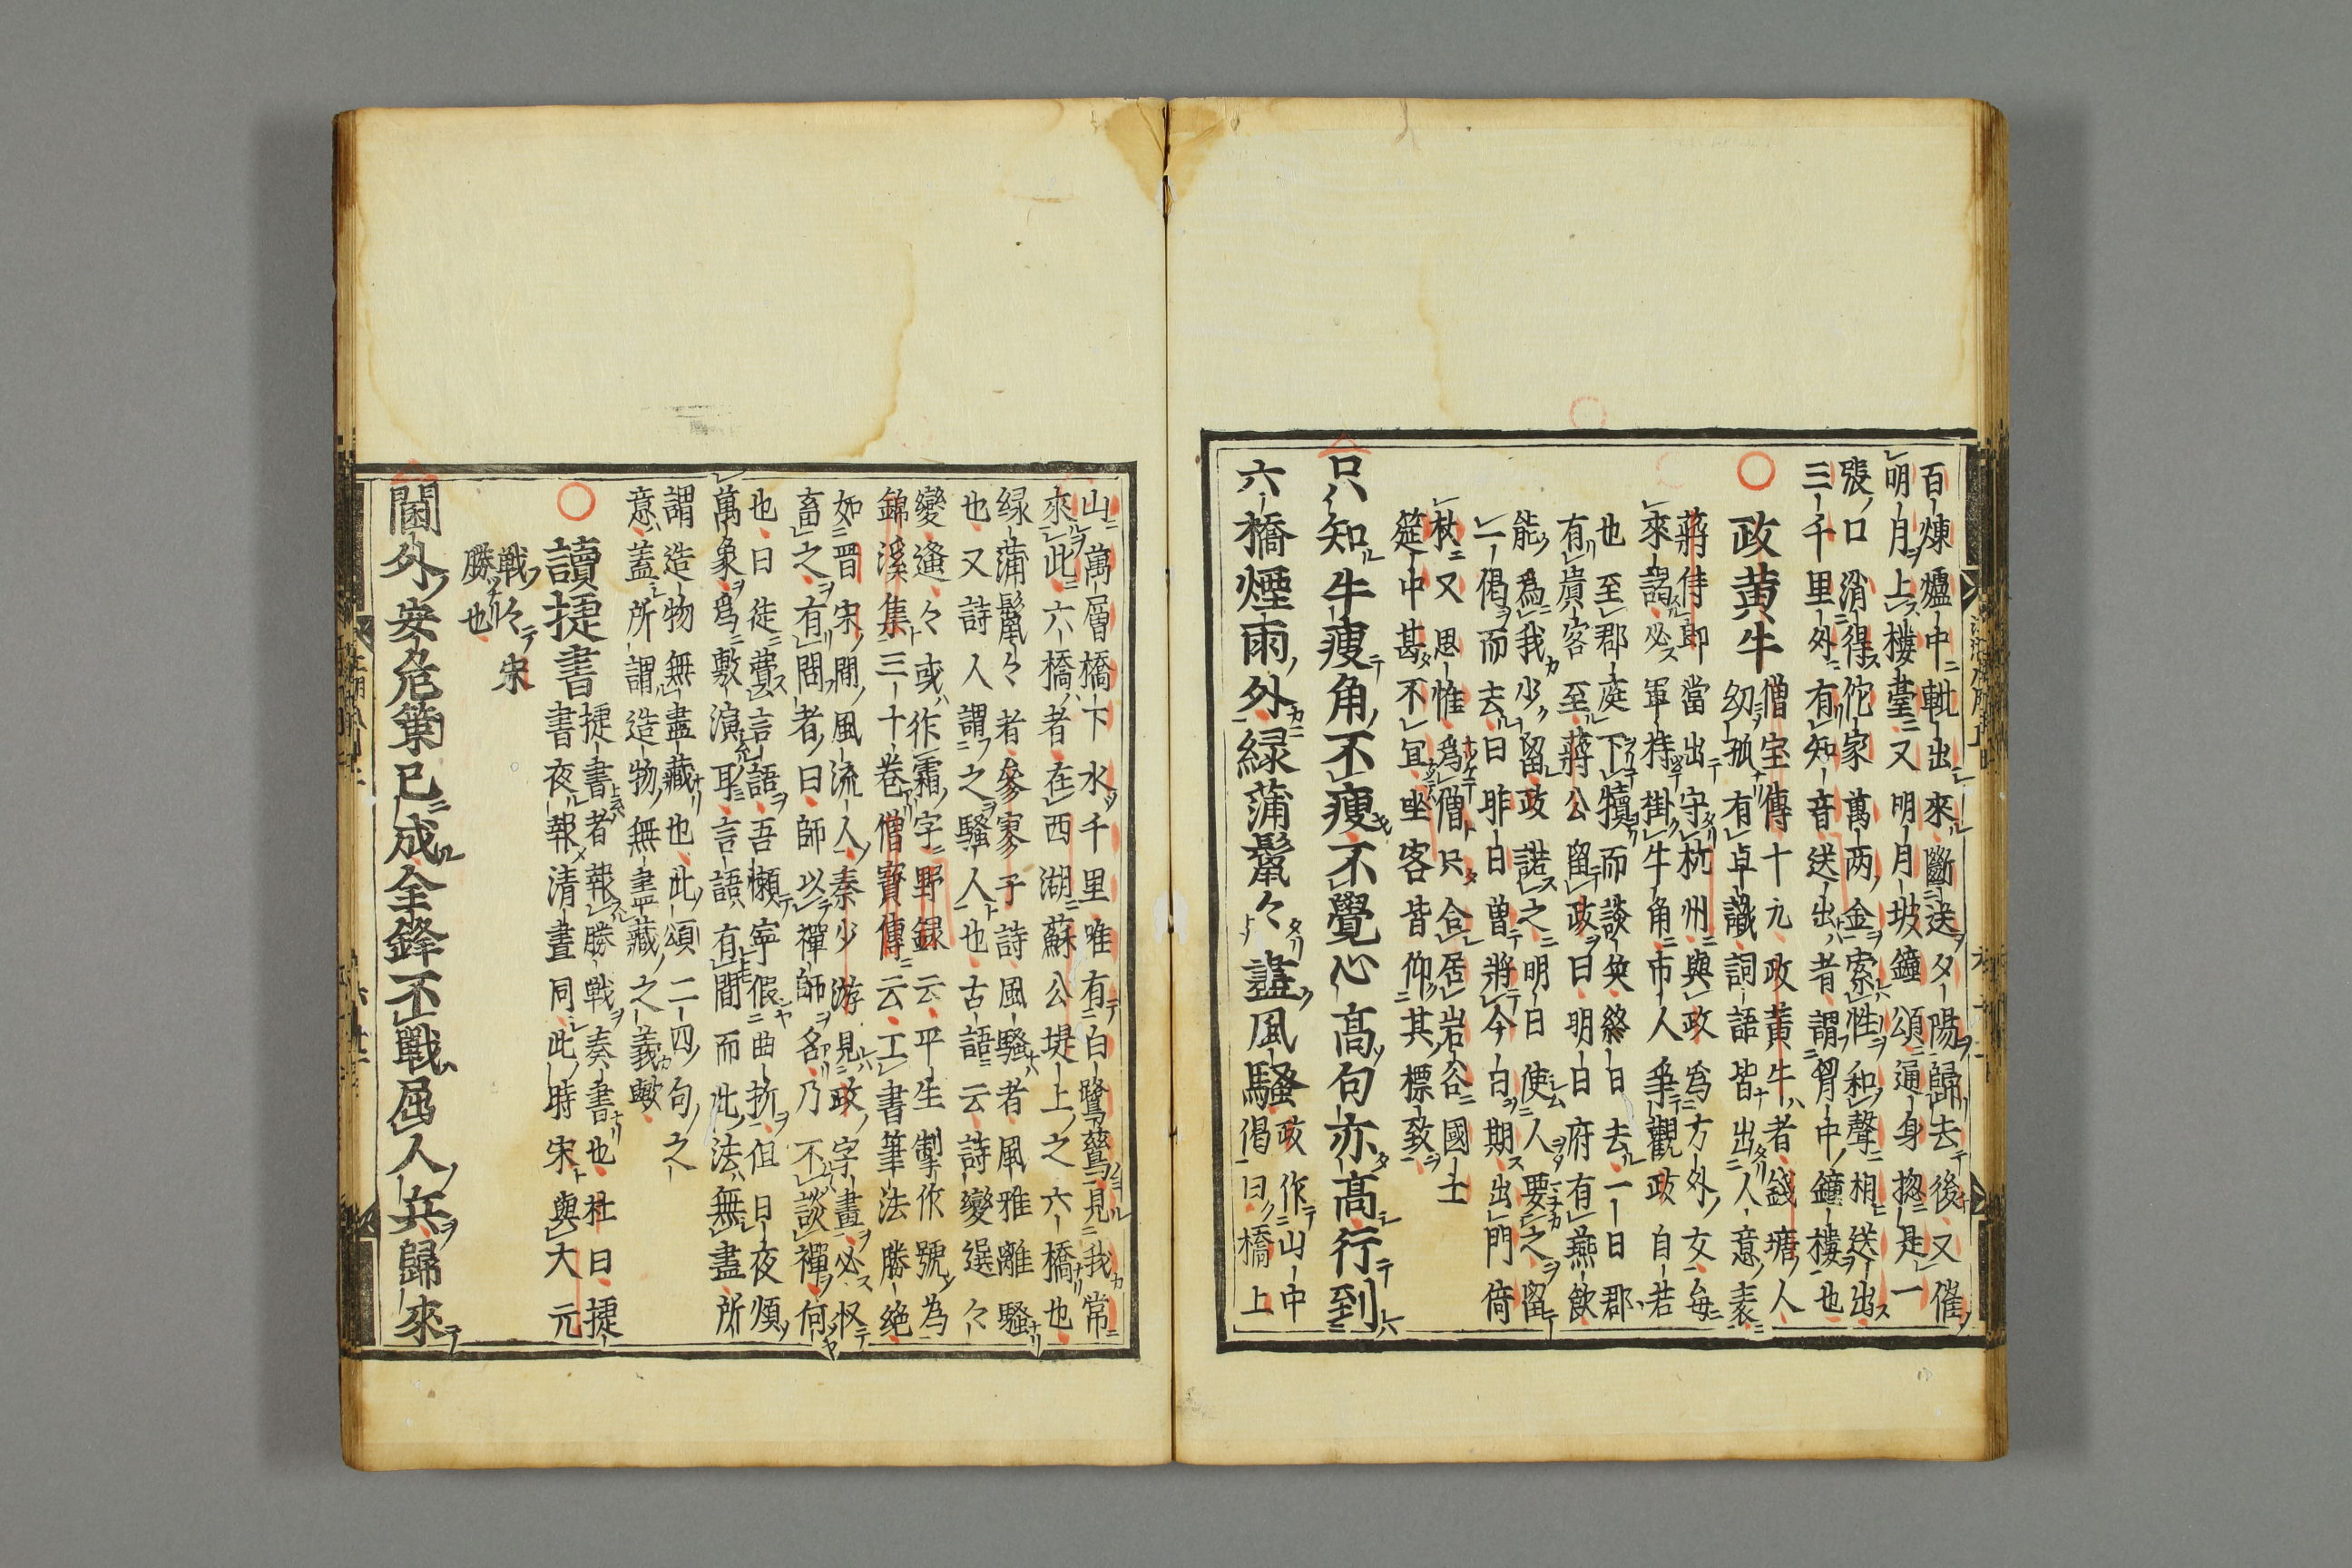 百煉爐中輥出來斷送夕陽歸去後又催
明月上樓臺又明月坡鐘頌通身揔是一
張口消得佗家萬両金索性和聲相送出
三千里外有知音送出者謂胃中鐘樓也
政黄牛
僧宝傳十九政黄牛者錢塘人
幼孤有卓識詞語皆出人意表
蔣侍郎當出守杭州與政為方外友毎
來謁必軍持掛牛角市人爭觀政自若
也至郡庭下犢而談笑終日去一日郡
有貴客至蔣公留政曰明日府有燕飲
能為我少留政諾之明日使人要之留
一偈而去曰昨日曽將今日期出門倚
杖又思惟為僧只合居岩谷國士
筵中甚不冝坐客皆仰其標致
只知牛痩角不痩不覺心高句亦高行到
六橋煙雨外緑蒲鬣々盡風騷
政作山中
偈曰橋上
山萬層橋下水千里唯有白鷺鷥見我常
來此六橋者在西湖蘇公堤上之六橋也
緑蒲鬣々者參寥子詩風騷者風雅離騷
也又詩人謂之騷人也古語云詩變選々
變遙々或作霜字野録云平生製作號為
錦溪集三十巻僧寳傳云工書筆法勝絶
如晋宋間風流人秦少游見政字畫必収
畜之有問者曰師以禪師名乃不談禪何
也曰徒費言語吾懶寧假曲折但日夜煩
萬象為敷演耳言語有間而此法無盡所
謂造物無盡藏也此頌二四句之
意蓋所謂造物無盡藏之義歟
讀捷書
捷書者報勝戰奏書也杜曰捷
書夜報清晝同此時宋與大元
戰々宋
勝也
閫外安危策已成全鋒不戰屈人兵歸來